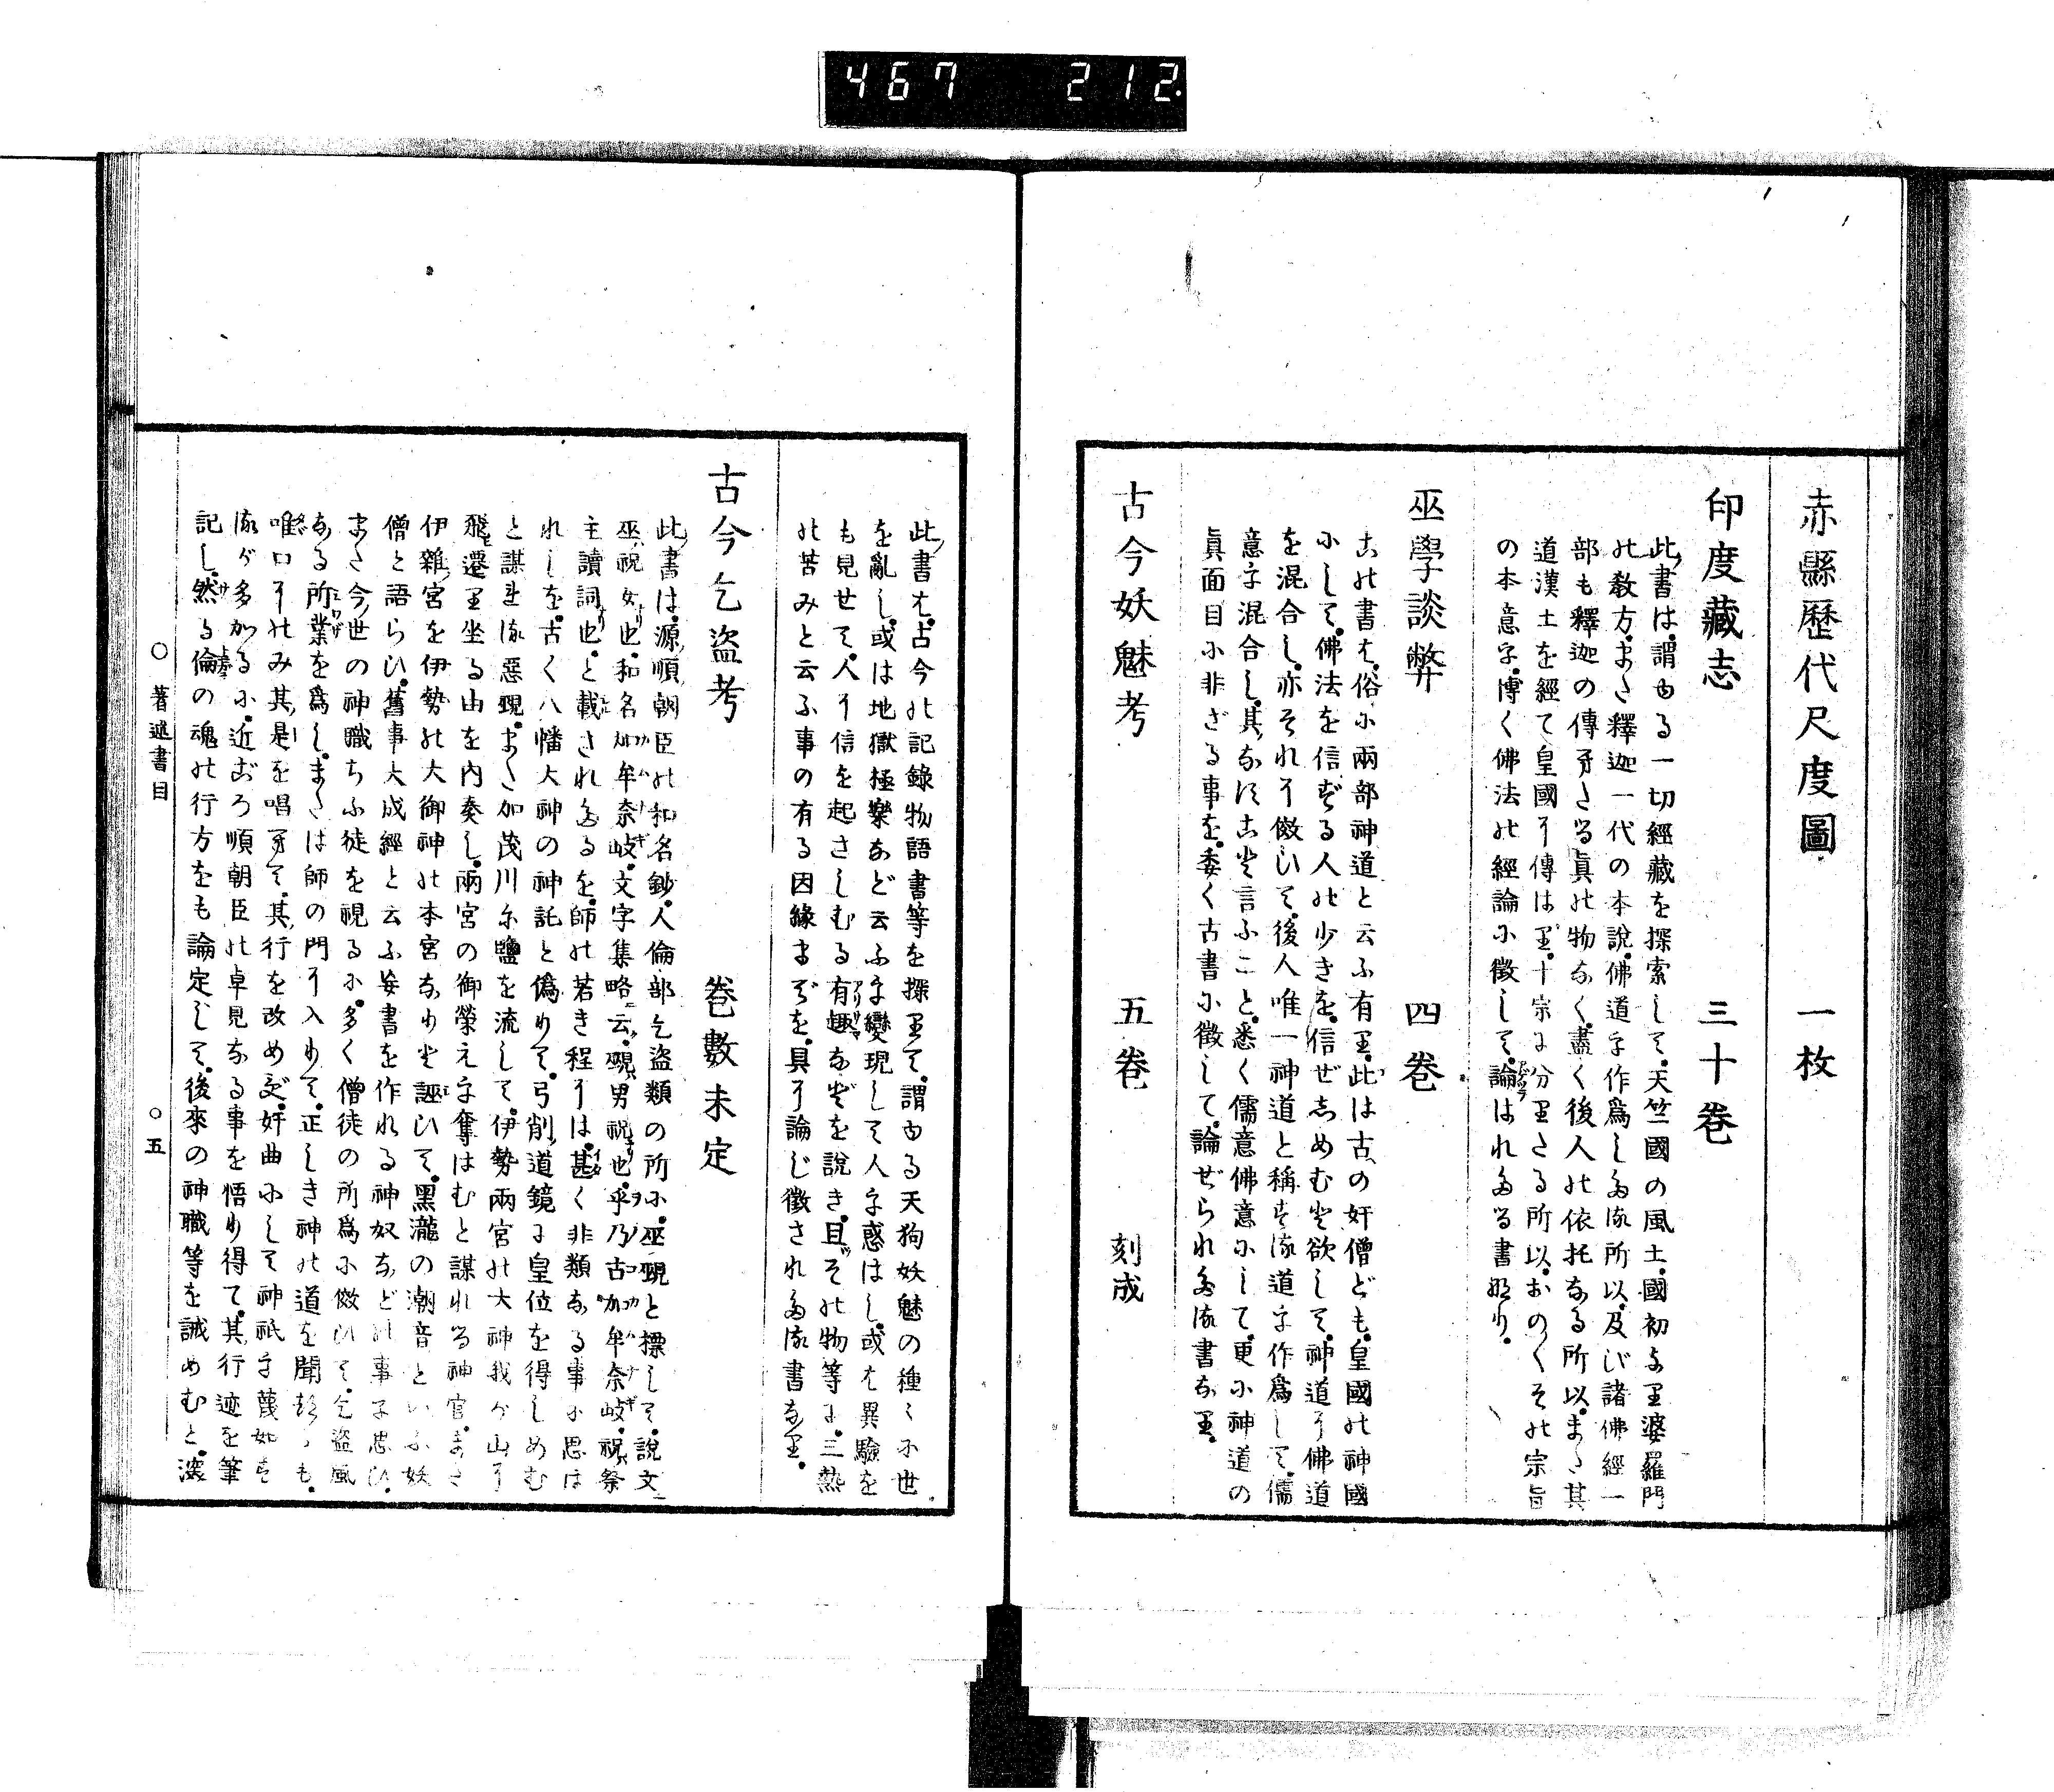 467 212
赤縣歷代尺度圖 一枚
印度藏志 三十卷
此書は。謂ゆる一切經藏を探索して。天竺國の風土。國初より婆羅門
の教方。また釋迦一代の本說。佛道を作爲したる所以。及び諸佛經一
部も釋迦の傳へたる眞の物なく。盡く後人の依托なる所以。また其
道漢土を經て皇國に傳はり。十宗に分りたる所以。おの〱その宗旨
の本意を。博く佛法の經論に徵して。論はれたる書なり。
巫學談弊 四卷
この書は。俗に兩部神道と云ふ有り。此は古の奸僧ども。皇國の神國
にして。佛法を信ずる人の少きを。信ぜしめむと欲して。神道に佛道
を混合し。亦それに傚ひて。後人唯一神道と稱する道を作爲して。儒
意を混合し。其なほこと言ふこと。悉く儒意佛意にして。更に神道の
眞面目に非ざる事を。委く古書に徵して。論ぜられたる書なり。
古今妖魅考 五卷 刻成
此書は。古今の記錄物語書等を探りて。謂ゆる天狗妖魅の種〻に世
を亂し。或は地獄極樂など云ふを變現して人を惑はし。或は異驗を
も見せて。人に信を起さしむる有趣などを說き。且その物等に。三熱
の苦みと云ふ事の有る因緣までを。具に論じ徵されたる書なり。
古今乞盜考 卷數未定
此書は。源順朝臣の和名鈔。人倫部乞盜類の所に。巫覡と標して。說文
巫祝女也。和名加牟奈岐。文字集略云。覡男祝也。乎乃古加牟奈岐。祝祭
主讀詞也。と載されたるを。師の若き程には。甚く非類なる事に思は
れしを。古く八幡大神の神託と僞りて。弓削道鏡に皇位を得しめむ
と謀れる惡覡。また加茂川に鹽を流して。伊勢兩宮の大神我が山に
飛遷り坐る由を內奏し。兩宮の御榮えを奪はむと謀れる神官。また
伊雜宮を伊勢の大御神の本宮なりと誣ひて。黑瀧の潮音といふ妖
僧と語らひ。舊事大成經と云ふ妄書を作れる神奴などの事を思ひ。
また今世の神職ちふ徒を視るに。多く僧徒の所爲に傚ひて。乞盜風
なる所業を爲し。または師の門に入りて。正しき神の道を聞ても。
唯口にのみ其是を唱へて。其行を改めず。奸曲にして神祇を蔑如す
るが多かるに。近ごろ順朝臣の卓見なる事を悟り得て。其行迹を筆
記し。然る倫の魂の行方をも論定じて。後來の神職等を誡めむと。深
○著述書目 ○五